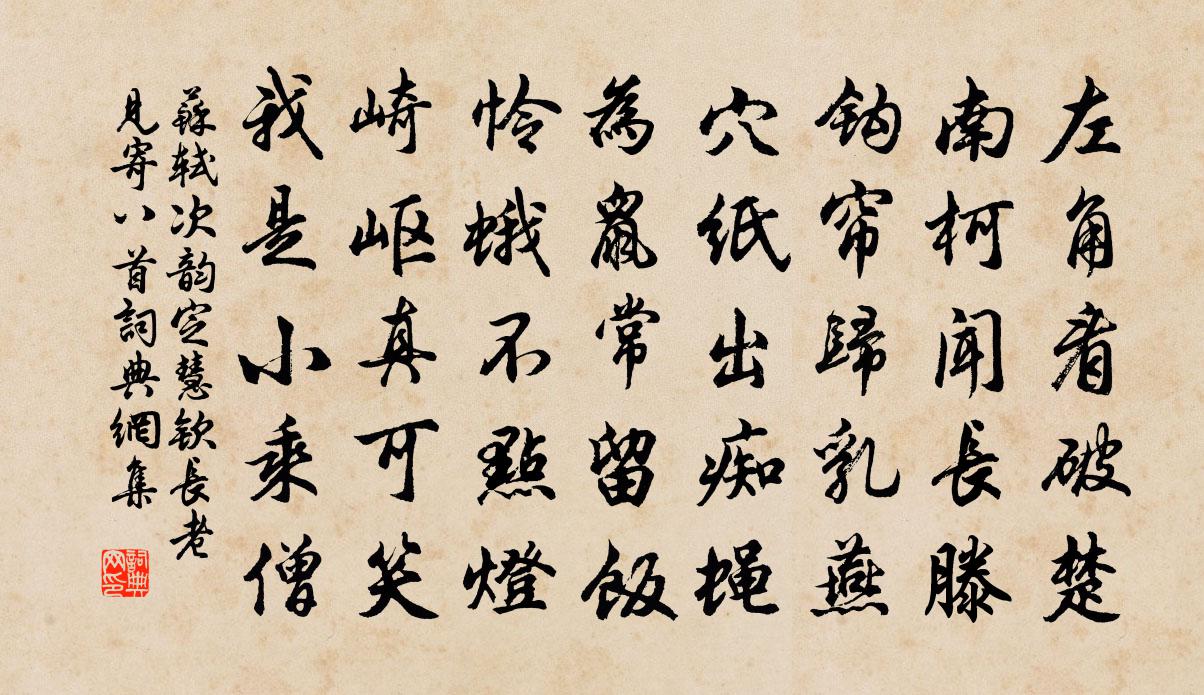 左角看破楚
南柯聞長滕
鈎帘歸乳燕
穴紙出痴蝇
為鼠常留飯
怜蛾不點燈
崎岖真可笑
我是小乘僧
蘇轼次韵定慧欽長老
見寄八首詞典網集
詞典网印